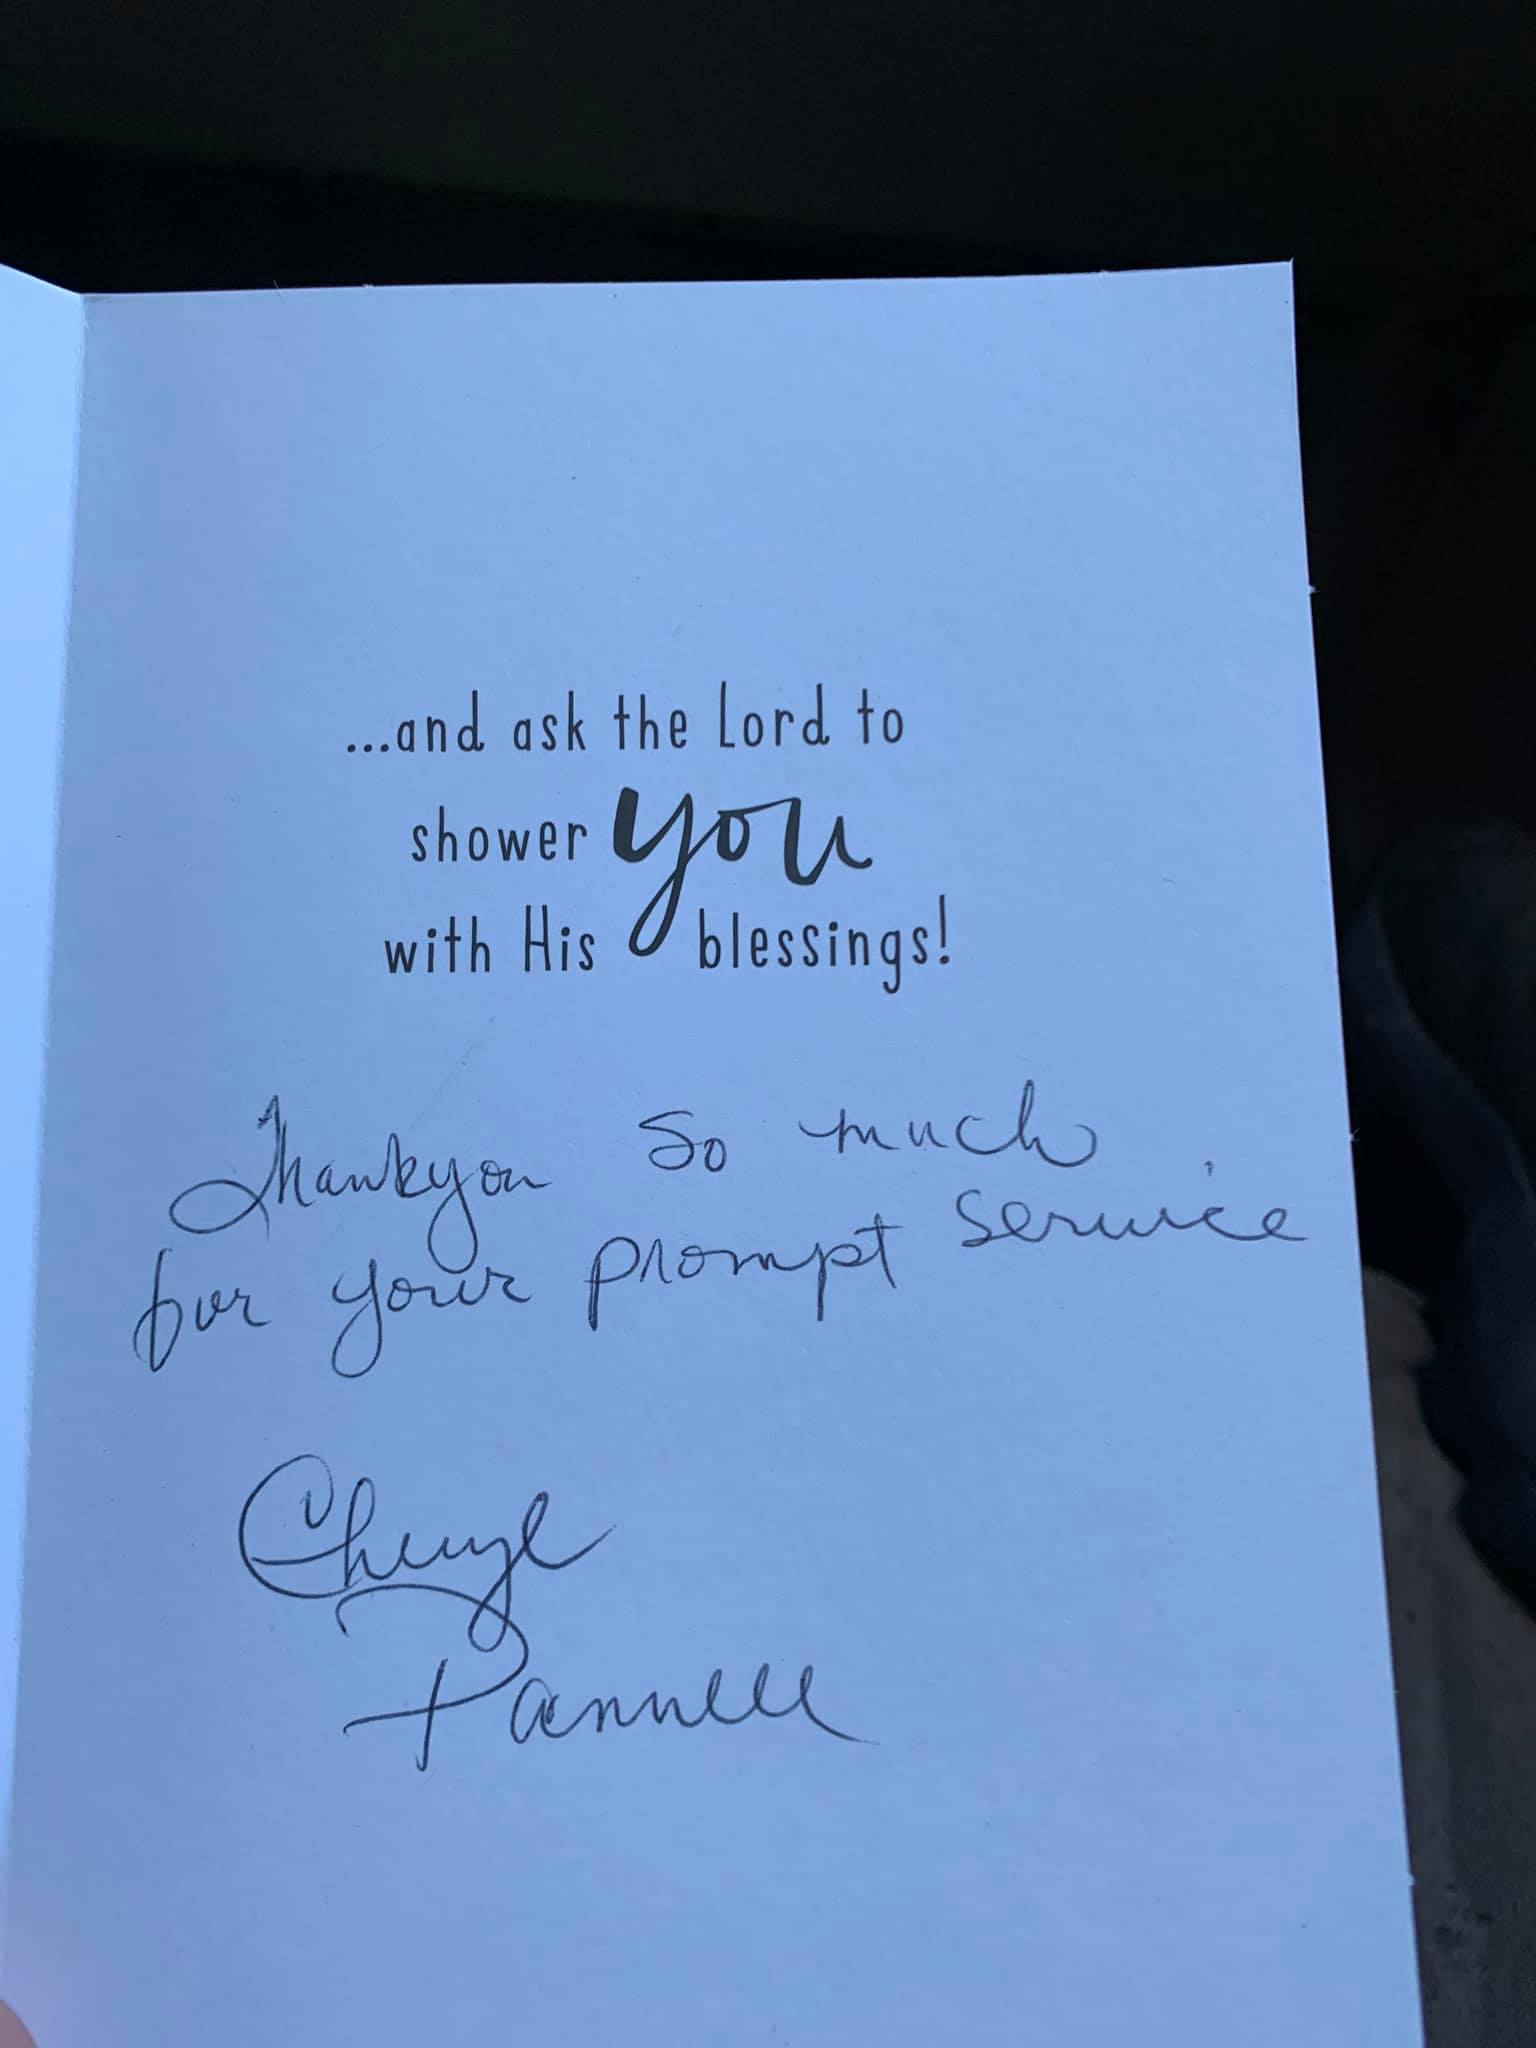 ...and ask the Lord to
shower you
with His blessings!
Thankyou So much
for your prompt service
Cheryl
Pannell